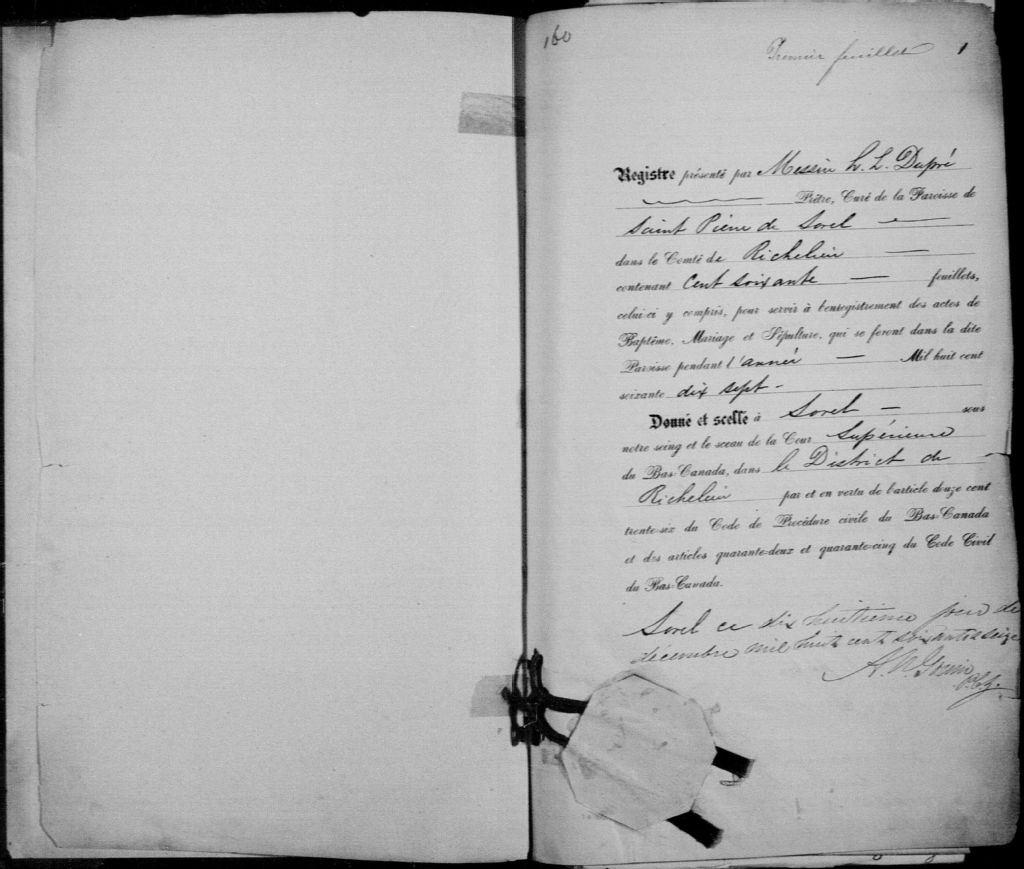 160
Premier feuillet 1
Registre présenté par Messire H. L. Dupré
Prêtre, Curé de la Paroisse de
Saint Pierre de Sorel
dans le Comté de Richelieu
contenant Cent soixante feuillets,
celui-ci y compris, pour servir à l'enregistrement des actes de
Baptême, Mariage et Sépulture, qui se feront dans la dite
Paroisse pendant l'année Mil huit cent
soixante dix sept -
Donné et scellé à Sorel - sous
notre seing et le sceau de la Cour Supérieure
du Bas-Canada, dans le District de
Richelieu par et en vertu de l'article douze cent
trente-six du Code de Procédure civile du Bas-Canada
et des articles quarante-deux et quarante-cinq du Code Civil
du Bas-Canada.
Sorel ce dix huitieme jour de
décembre mil huit cent soixante &seize
A. N. Gouin